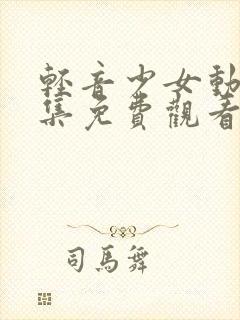 輕音少女動
集免費觀看
司馬舞